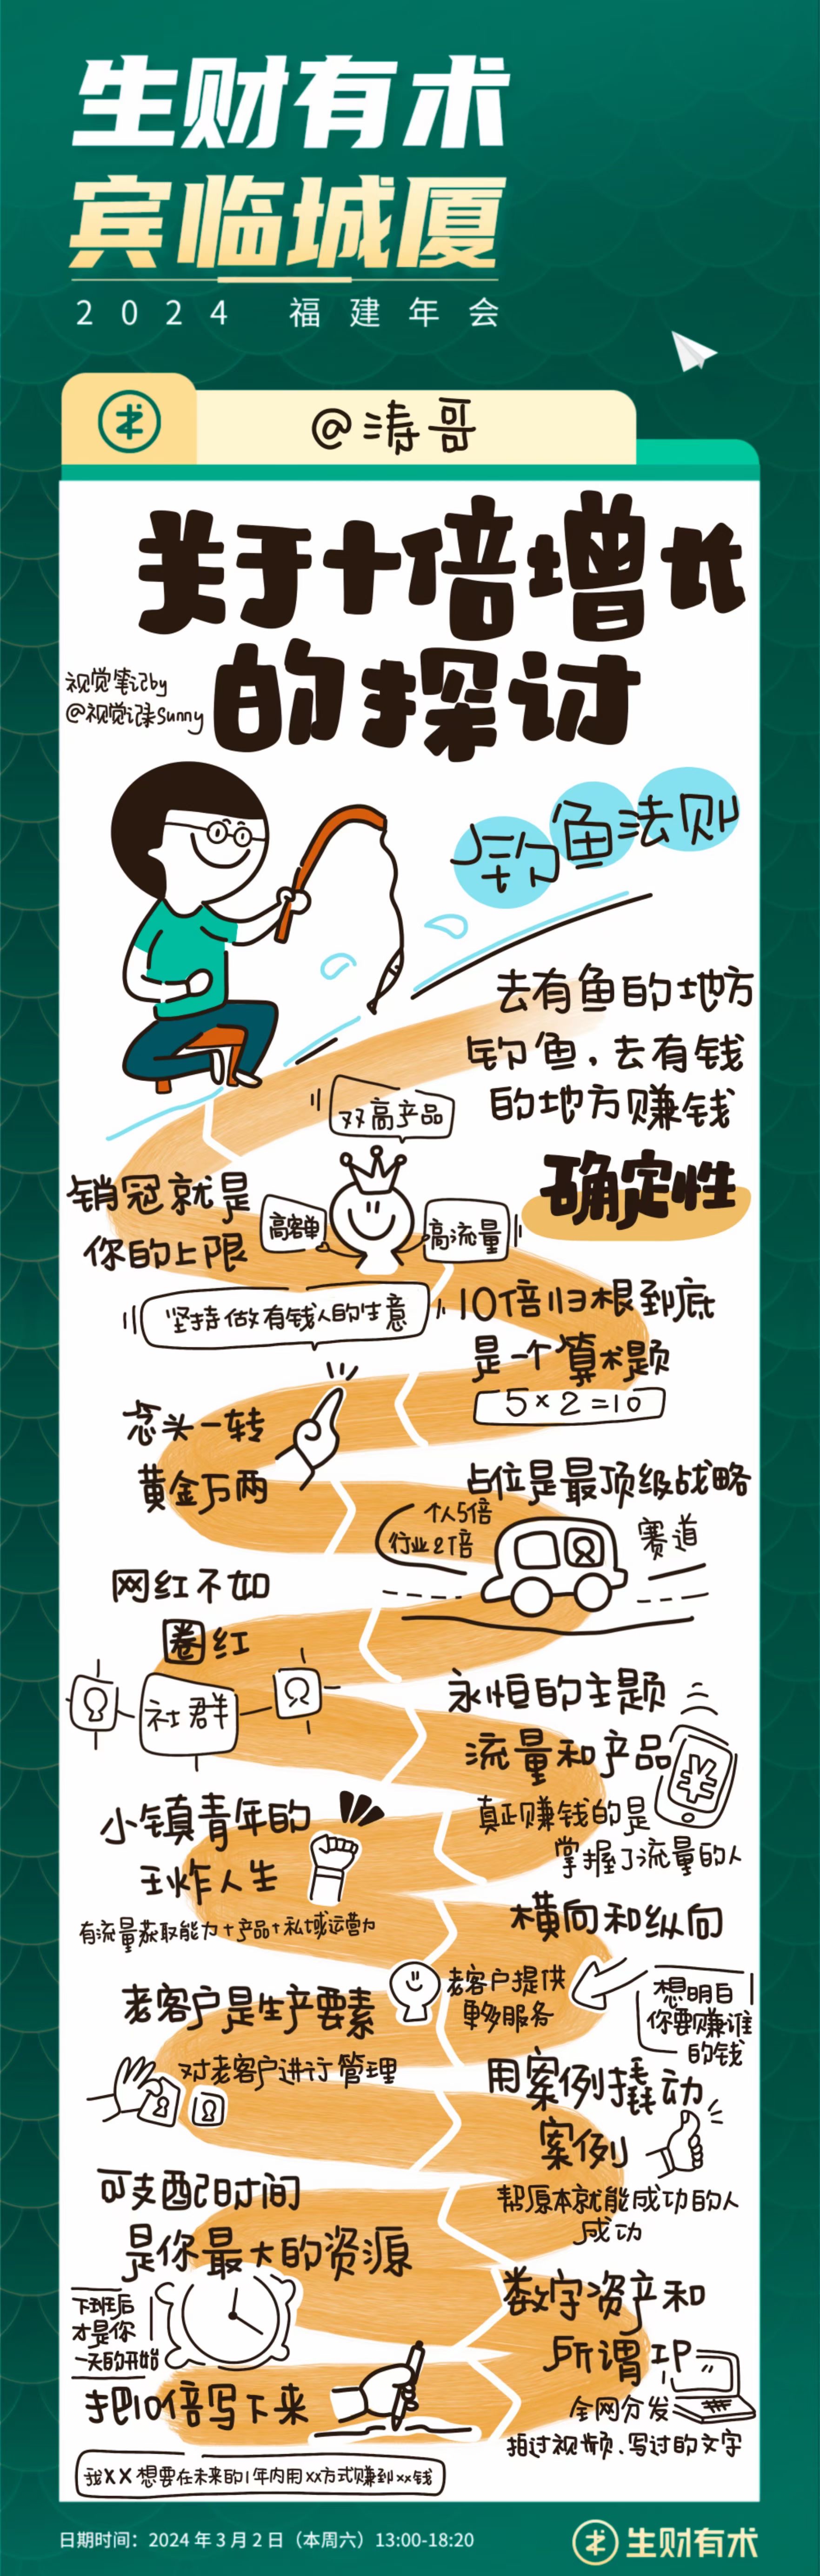 生财有术
宾临城厦
2024 福建年会
@涛哥
关于十倍增长
的探讨
视觉笔记by
@视觉记录Sunny
钓鱼法则
去有鱼的地方
钓鱼，去有钱
的地方赚钱
双高产品
确定性
销冠就是
你的上限
高客单
高流量
坚持做有钱人的生意
10倍归根到底
是一个算术题
5×2=10
念头一转
黄金万两
占位是最顶级战略
个人5倍
行业2倍
赛道
网红不如
圈红
社群
永恒的主题
流量和产品
¥
真正赚钱的是
掌握了流量的人
小镇青年的
王炸人生
有流量获取能力+产品+私域运营力
横向和纵向
老客户提供
更多服务
想明白
你要赚谁
的钱
老客户是生产要素
对老客户进行管理
用案例撬动
案例
帮原本就能成功的人
成功
可支配时间
是你最大的资源
下班后
才是你
一天的开始
数字资产和
所谓IP
全网分发
拍过视频、写过的文字
把10倍写下来
我XX想要在未来的1年内用xx方式赚到xx钱
日期时间：2024年3月2日（本周六）13:00-18:20
生财有术